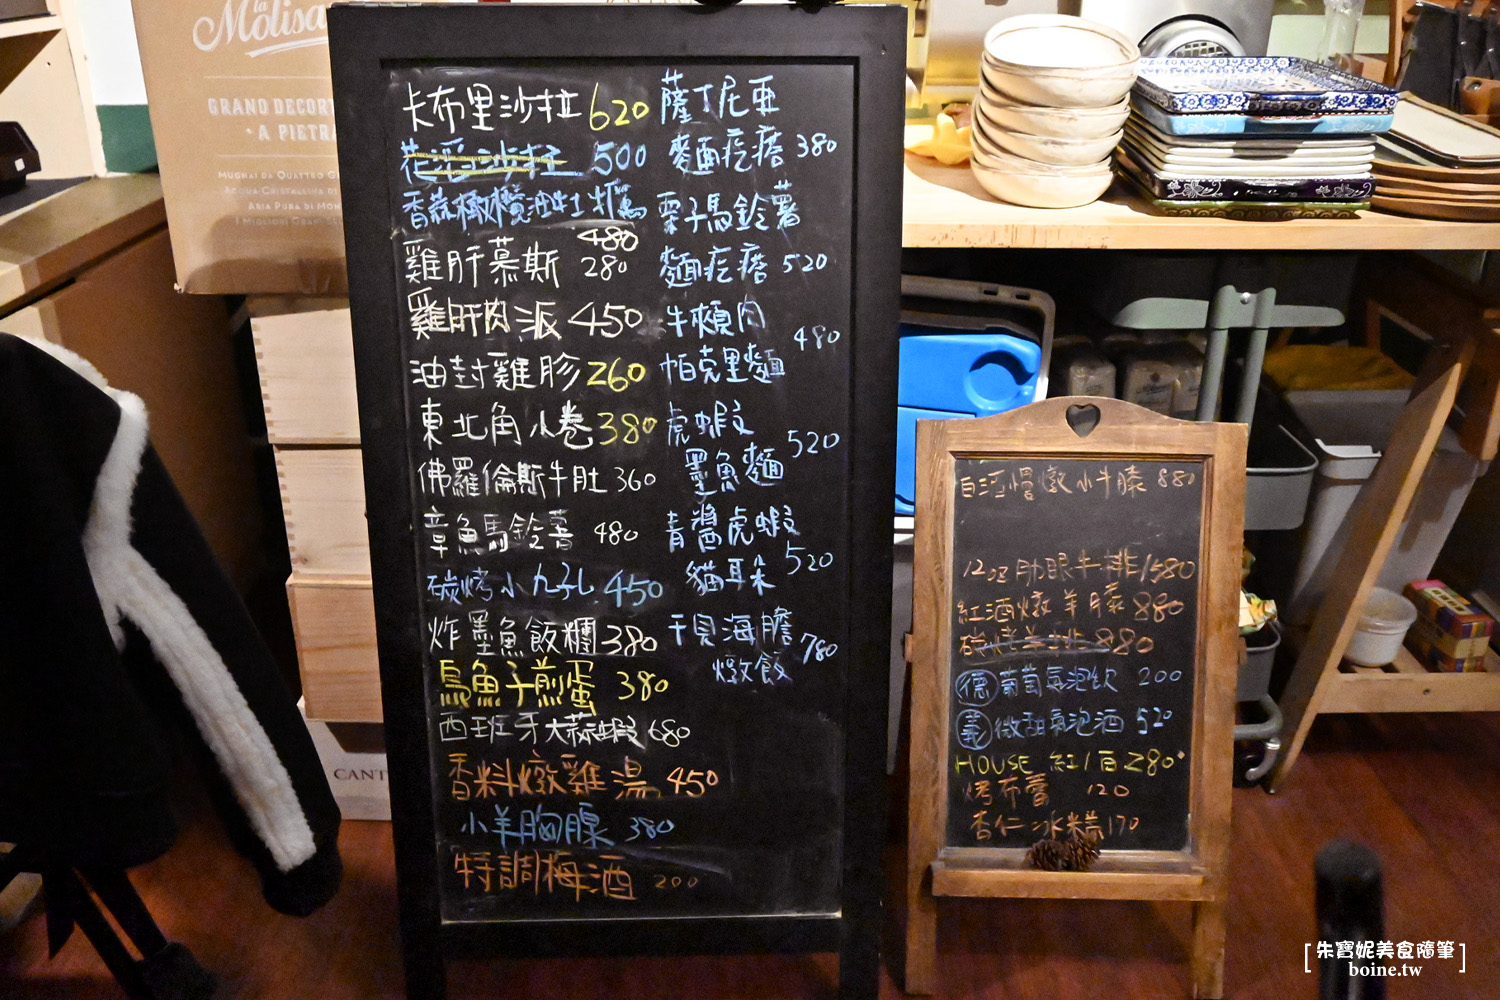 la
Molisa
GRAND DECORT
• A PIETRA
MUGNAI DA QUATTRO G
ACQUA CRISTALLINA DI
ARIA PURA DI MON
I MIGLIORI GRANI
CANT
卡布里沙拉 620
花浮沙拉 500
香蒜橄欖油牡蠣
480
雞肝慕斯 280
雞肝肉派 450
油封雞胗 260
東北角小卷 380
佛羅倫斯牛肚 360
章魚馬鈴薯 480
碳烤小九孔 450
炸墨魚飯糰 380
烏魚子煎蛋 380
西班牙大蒜蝦 680
香料燉雞湯 450
小羊胸腺 380
特調梅酒 200
薩丁尼亞
麵疙瘩 380
栗子馬鈴薯
麵疙瘩 520
牛頰肉
帕克里麵 480
虎蝦
墨魚麵 520
青醬虎蝦
貓耳朵 520
干貝海膽
燉飯 780
白酒慢燉小牛膝 880
12oz肋眼牛排 1580
紅酒燉羊膝 880
碳烤羊排 880
德 葡萄氣泡飲 200
義 微甜氣泡酒 520
HOUSE 紅/白 280
烤布蕾 120
杏仁冰糕 170
[朱寶妮美食隨筆]
boine.tw